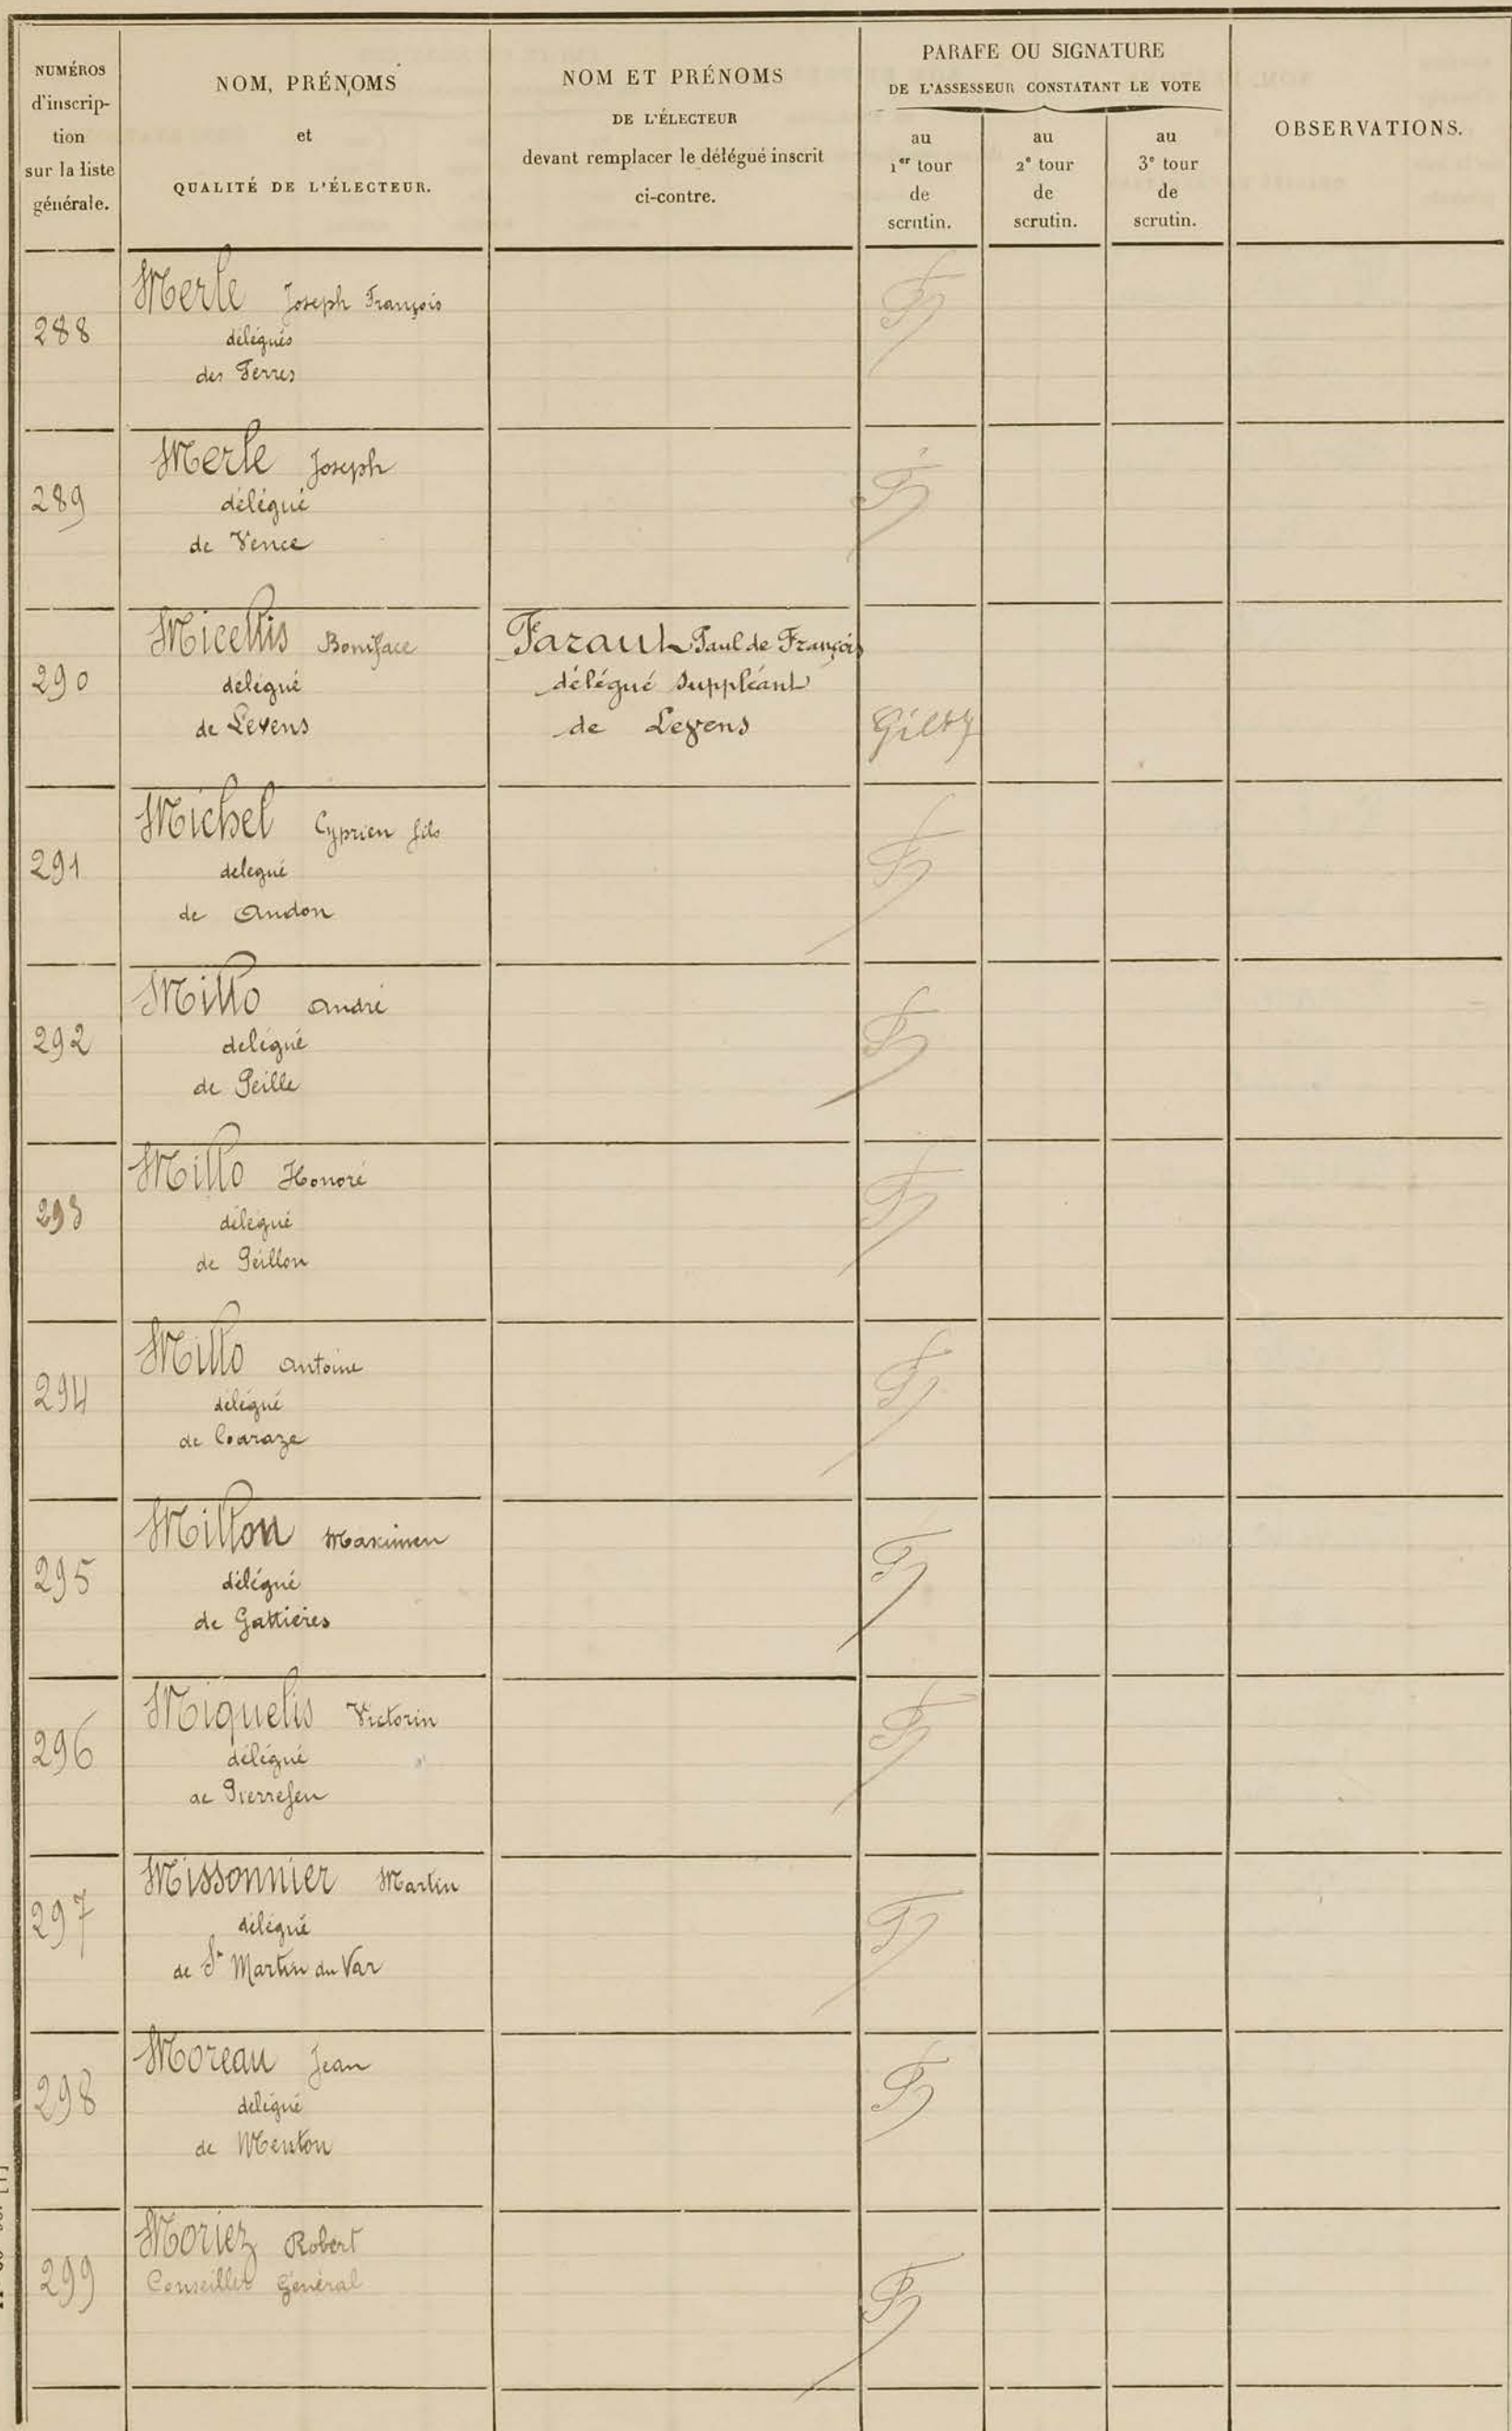 NUMÉROS
d'inscrip-
tion
sur la liste
générale.
NOM, PRÉNOMS
et
QUALITÉ DE L'ÉLECTEUR.
NOM ET PRÉNOMS
DE L'ÉLECTEUR
devant remplacer le délégué inscrit
ci-contre.
PARAFE OU SIGNATURE
DE L'ASSESSEUR CONSTATANT LE VOTE
au
1er tour
de
scrutin.
au
2e tour
de
scrutin.
au
3e tour
de
scrutin.
OBSERVATIONS.
288
Merle Joseph François
délégués
des Ferres
289
Merle Joseph
délégué
de Vence
290
Micellis Boniface
délégué
de Levens
Faraut Paul de François
délégué suppléant
de Levens
291
Michel Cyprien fils
délegué
de Andon
292
Millo André
délégué
de Peille
293
Millo Honoré
délégué
de Peillon
294
Millo Antoine
délégué
de Coaraze
295
Millon Maximen
délégué
de Gattières
296
Miquelis Victorin
délégué
de Pierrefeu
297
Missonnier Martin
délégué
de St Martin du Var
298
Moreau Jean
délégué
de Menton
299
Moriez Robert
Conseiller Général